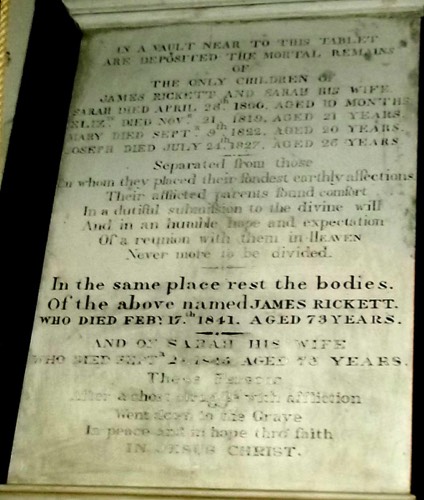 IN A VAULT NEAR TO THIS TABLET
ARE DEPOSITED THE MORTAL REMAINS
OF
THE ONLY CHILDREN OF
JAMES RICKETT AND SARAH HIS WIFE
SARAH DIED APRIL 28th AGED 19 MONTHS
ELIZ. DIED NOVr 21 1819, AGED 21 YEARS
MARY DIED SEPTr 9th 1822, AGED 20 YEARS
JOSEPH DIED JULY 24th 1827, AGED 26 YEARS
Separated from those
On whom they placed their fondest earthly affections
Their afflicted parents found comfort
In a dutiful submission to the divine will
And in an humble hope and expectation
Of a reunion with them in HEAVEN
Never more to be divided.
In the same place rest the bodies.
Of the above named JAMES RICKETT.
WHO DIED FEBy 17.th 1841. AGED 73 YEARS.
AND OF SARAH HIS WIFE
WHO DIED SEPTr AGED YEARS.
These
After a short with affliction
Went down to the Grave
In peace and in hope thro' faith
IN JESUS CHRIST.